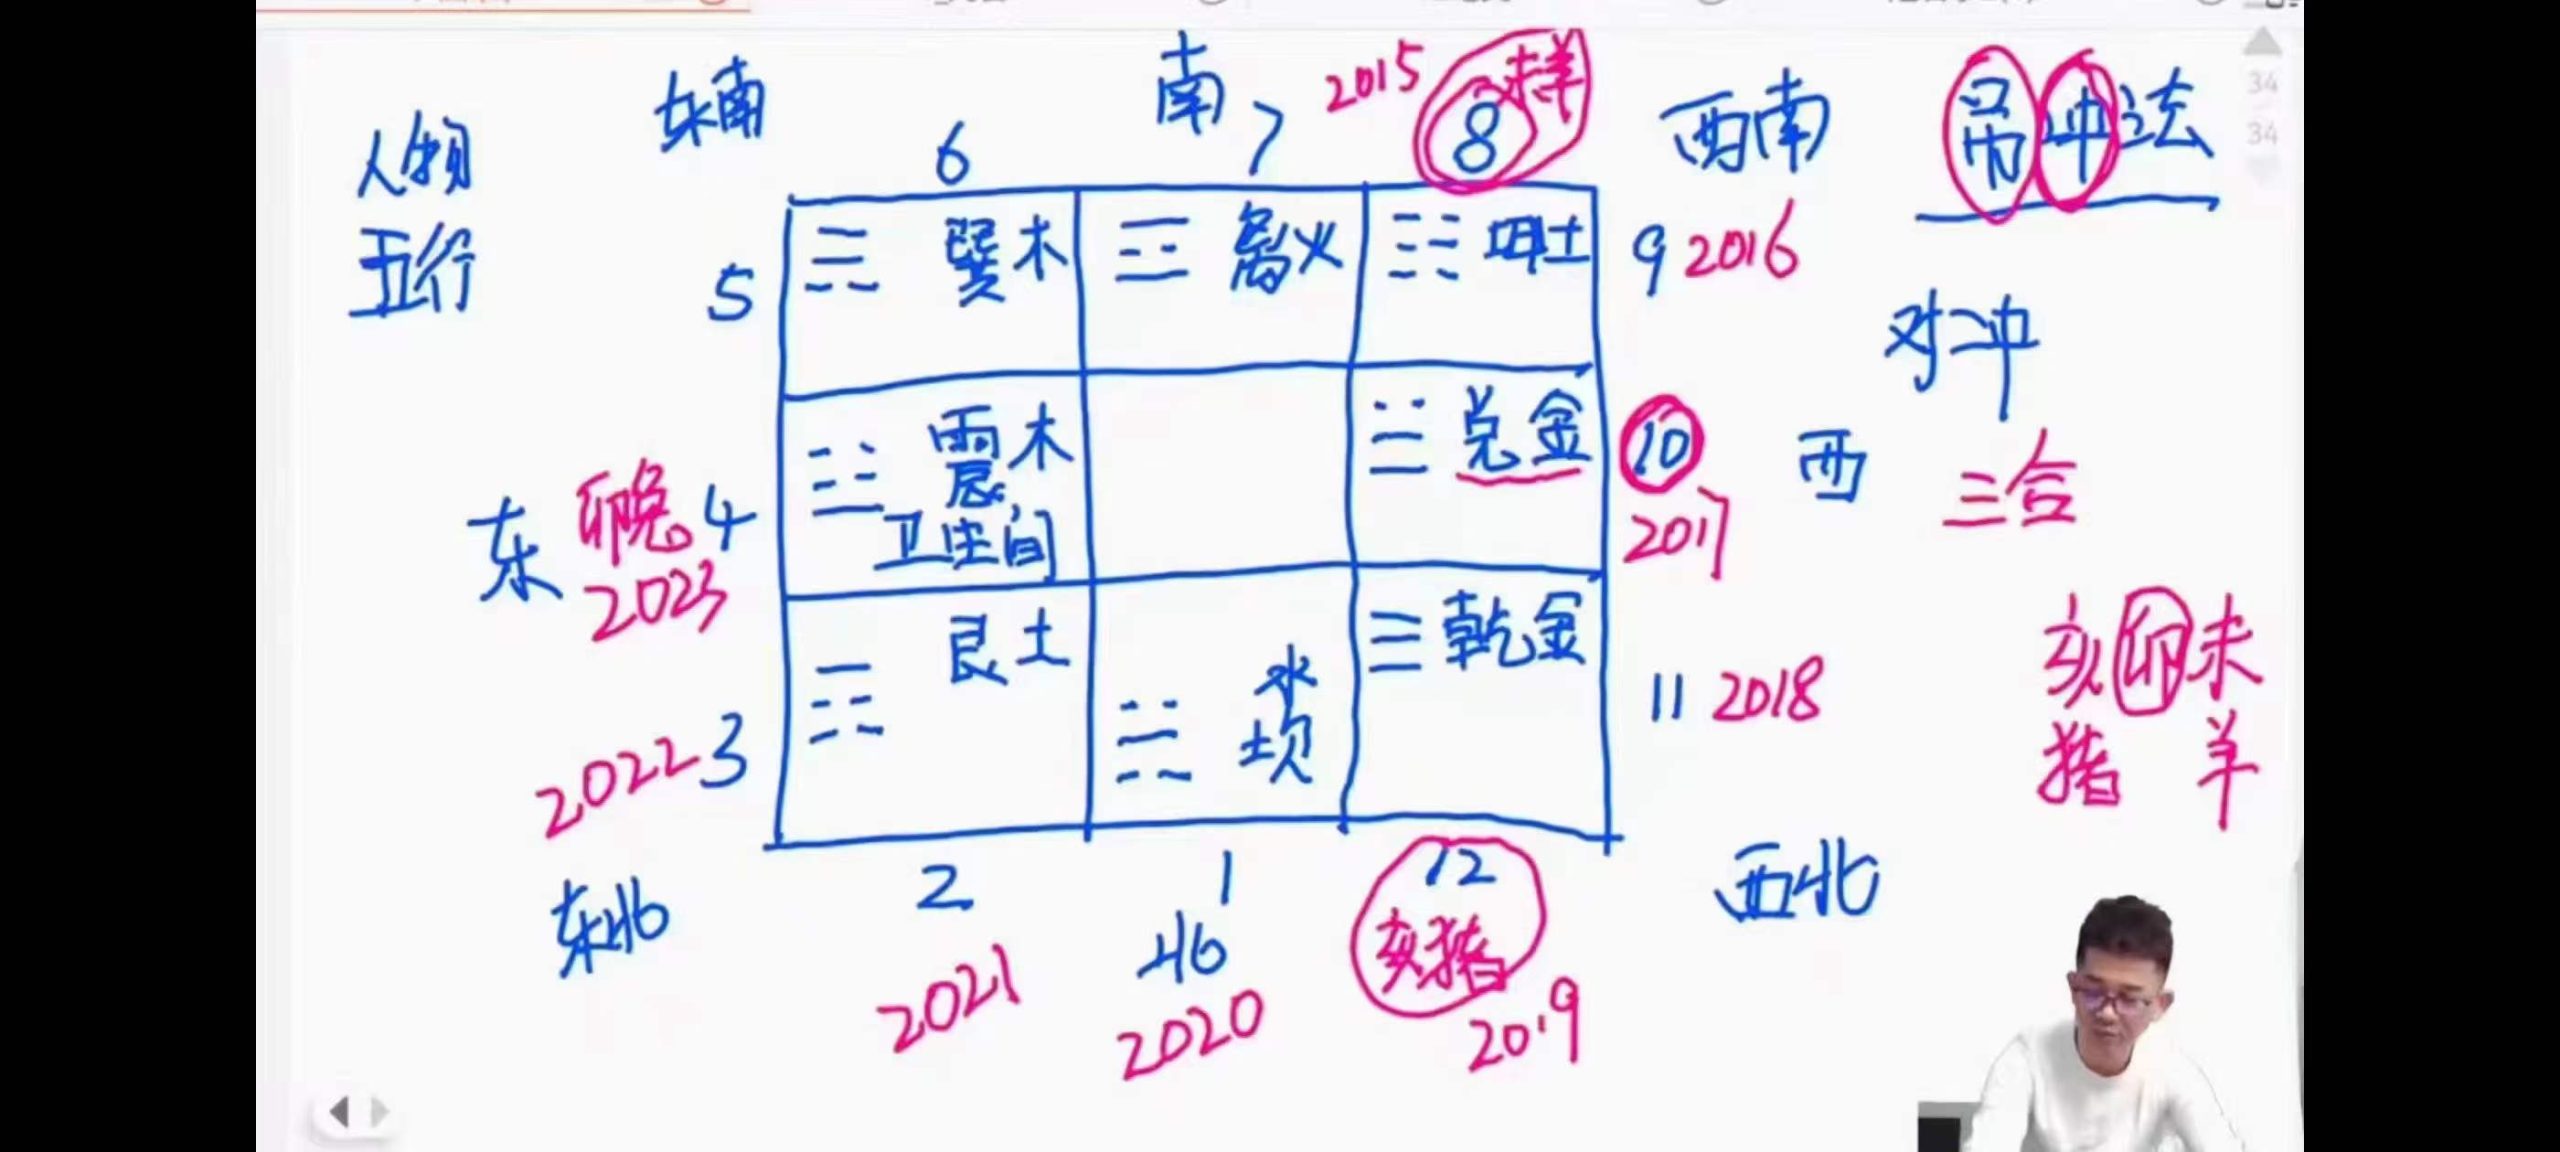 东南 南 2015 未羊
6 7 8 西南 吊冲法
人物
五行
5 巽木 离火 坤土 9 2016
对冲
东 卯兔 4 震木 兑金 10 西 三合
2023 卫生间 2017
亥卯未
猪 羊
2022 3 艮土 水 乾金 11 2018
坎
2 1 12
东北 北 亥猪 西北
2021 2020 2019
34
34